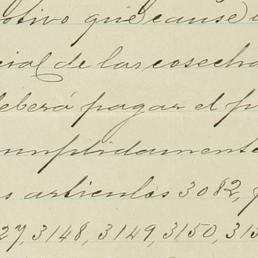 otivo que cause
cial de las cosecha
deberá pagar el p
umplidamente
s articulos 3082,
27, 3148, 3149, 3150, 315